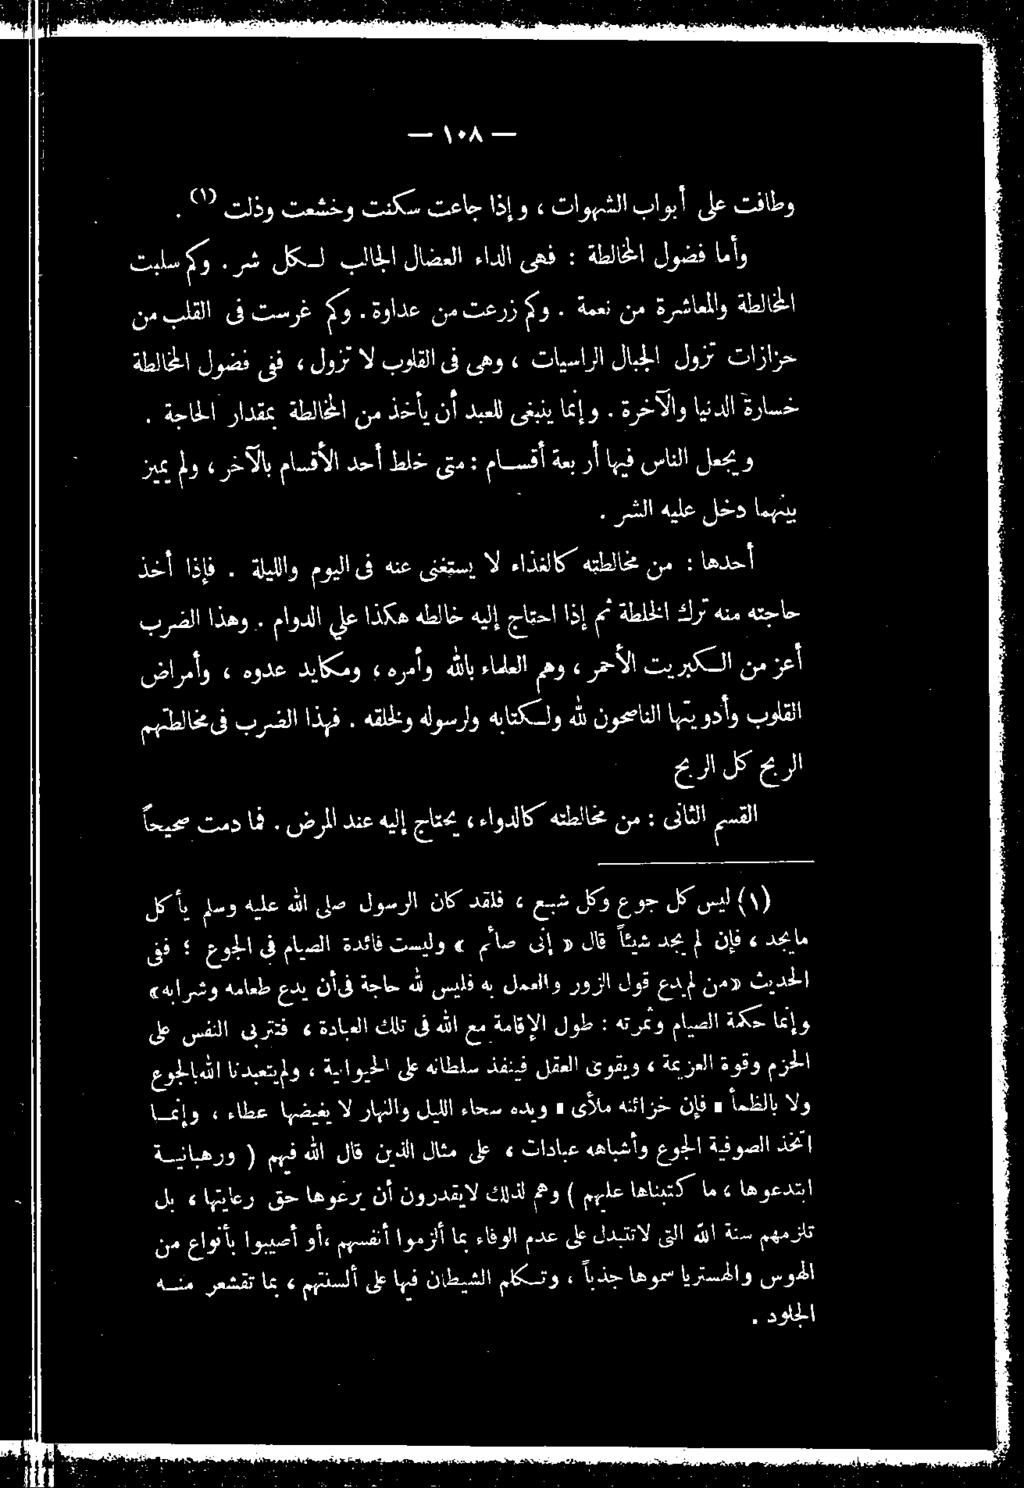 — ١٠٨ —
وطافت على أبواب الشهوات ، وإذا جاعت سكنت وخشعت وذلت (١) .
وأما فضول المخالطة : فهى الداء العضال الجالب لـكل شر . وكم سلبت
المخالطة والمعاشرة من نعمة . وكم زرعت من عداوة . وكم غرست فى القلب من
حزازات تزول الجبال الراسيات ، وهى فى القلوب لا تزول ، ففى فضول المخالطة
خسارة الدنيا والآخرة . وإنما ينبغى للعبد أن يأخذ من المخالطة بمقدار الحاجة .
ويجعل الناس فيها أربعة أقسام : متى خلط أحد الأقسام بالآخر ، ولم يميز
بينهما دخل عليه الشر .
أحدها : من مخالطته كالغذاء لا يستغنى عنه فى اليوم والليلة . فإذا أخذ
حاجته منه ترك الخلطة ثم إذا احتاج إليه خالطه هكذا على الدوام . وهذا الضرب
أعز من الـكبريت الأحمر ، وهم العلماء بالله وأمره ، ومكايد عدوه ، وأمراض
القلوب وأدويتها الناصحون لله ولـكتابه ولرسوله ولخلقه . فهذا الضرب فى مخالطتهم
الربح كل الربح
القسم الثانى : من مخالطته كالدواء ، يحتاج إليه عند المرض . فما دمت صحيحاً
(١) ليس كل جوع وكل شبع ، فلقد كان الرسول صلى الله عليه وسلم يأكل
مايجد ، فإن لم يجد شيئاً قال « إنى صائم » وليست فائدة الصيام فى الجوع ؛ ففى
الحديث «من لم يدع قول الزور والعمل به فليس لله حاجة فى أن يدع طعامه وشرابه»
وإنما حكمة الصيام وثمرته : طول الإقامة مع الله فى تلك العبادة ، فتتربى النفس على
الحزم وقوة العزيمة ، ويقوى العقل فينفذ سلطانه على الحيوانية ، ولم يتعبدنا الله بالجوع
ولا بالظمأ ، فإن خزائنه ملأى ، ويده سحاء الليل والنهار لا يغيضها عطاء ، وإنمـا
اتخذ الصوفية الجوع وأشباهه عبادات ، على مثال الذين قال الله فيهم ( ورهبانيـة
ابتدعوها ، ما كتبناها عليهم ) وهم لذلك لايقدرون أن يرعوها حق رعايتها ، بل
تلزمهم سنة الله التى لاتتبدل على عدم الوفاء بما ألزموا أنفسهم ، أو أصيبوا بأنواع من
الهوس والهستريا سموها جذباً ، وتـكلم الشيطان فيها على ألسنتهم ، بما تقشعر منـه
الجلود .